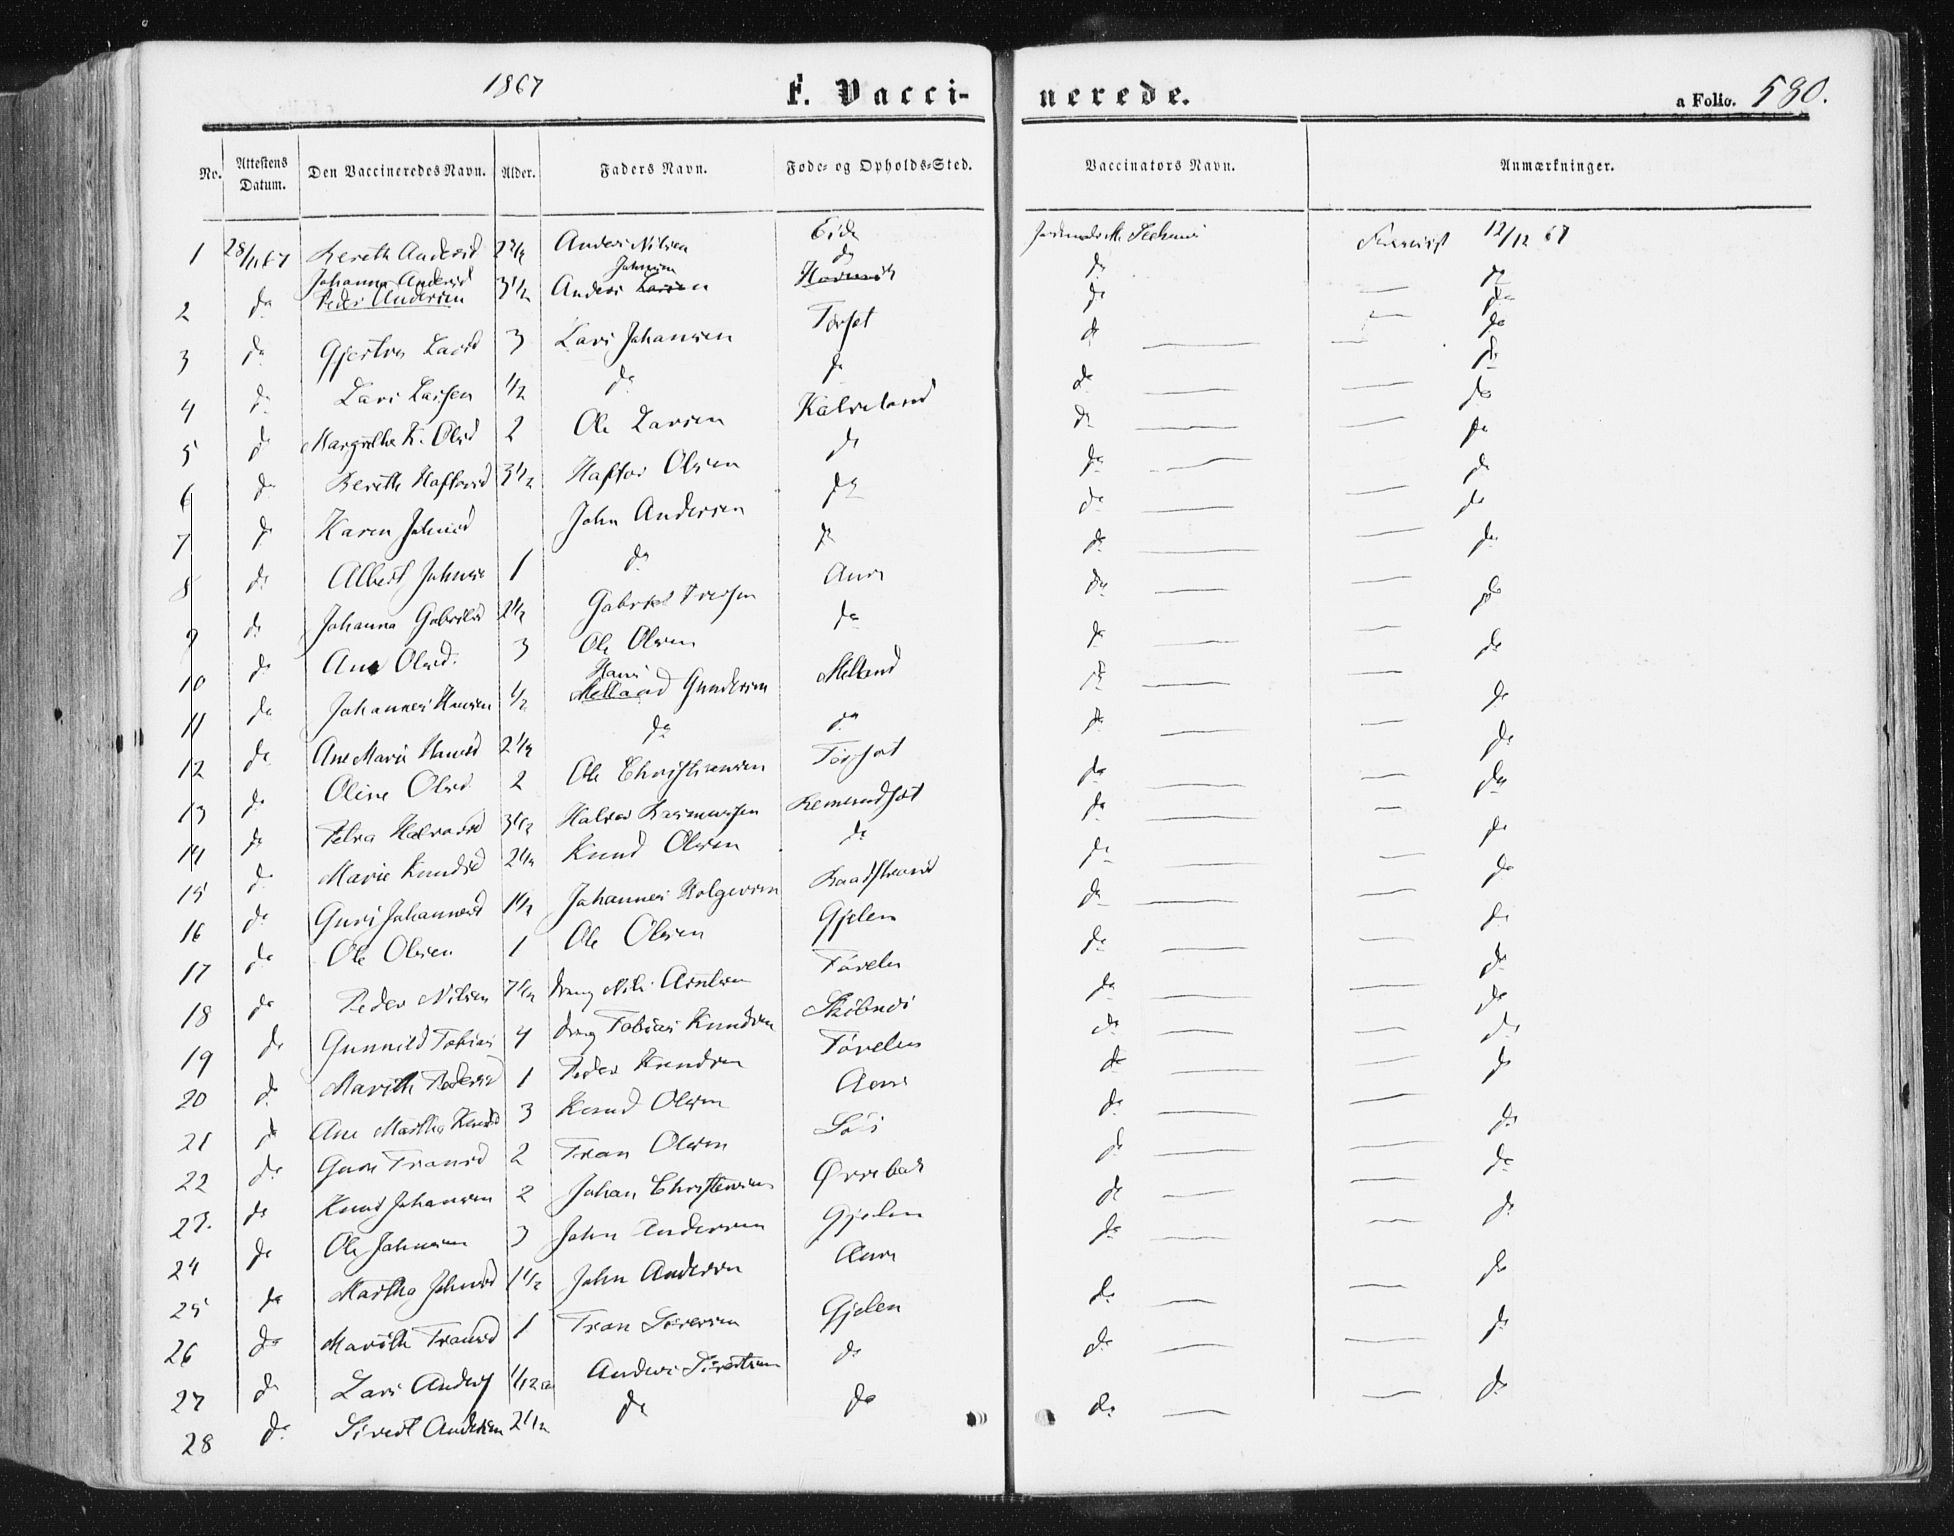 1867
F. Vacci-
nerede.
a Folio. 580.
No. Attestens Datum. Den Vaccineredes Navn. Alder. Faders Navn. Føde- og Opholds-Sted. Vaccinators Navn. Anmærkninger.
1 28/11 67 Bereth Andersd 2 1/2 Anders Nilsen Eide 12/12 67
Johanna Andersd Johnsen do
2 do Peder Andersen 3 1/2 Anders Larsen do do
3 do Gjertru Larsd 3 Lars Johansen Torset do do
4 do Lars Larsen 1/2 do do do do
5 do Margrethe K. Olsd 2 Ole Larsen Kalveland do do
6 do Bereth Haftorsd 3 1/2 Haftor Olsen do do do
7 do Karen Johnsd John Andersen do do do
8 do Albert Johnsen 1 do do do do
9 do Johanna Gabrielsd 2 1/2 Gabriel Iversen Aure do do
10 do Ane Olsd. 3 Ole Olsen do do do
Hans
11 do Johannes Hansen 1/2 Melland Gundersen Melland do do
12 do Ane Marie Hansd 2 1/2 do do do do
13 do Oline Olsd 2 Ole Christiansen Torset do do
14 do Petra Halvorsd 3 1/2 Halvor Rasmussen do do
15 do Marie Knudsd 2 1/2 Knud Olsen do do do
16 do Guri Johannesd 1 1/2 Johannes Holgersen do do
17 do Ole Olsen 1 Ole Olsen Gjelen do do
18 do Peder Nilsen 7 1/2 Dreng Nils Arntsen Torelen do do
19 do Gunnild Tobias 4 Dreng Tobias Knudsen do do
20 do Marith Pedersd 1 Peder Knudsen Torelen do do
21 do Ane Martha Knudsd 3 Knud Olsen Aure do do
22 do Guru Transd 2 Tran Olsen do do
23. do Knud Johansen 2 Johan Christensen Ørrebak do do
24 do Ole Johnsen 3 John Andersen Gjelen do do
25 do Martha Johnsd 1 1/2 John Andersen Aure do do
26 do Marith Transd 1 Tran Sørensen Gjelen do do
27 do Lars Anders 1/12 a Anders Sivertsen do do do
28 do Sivert Andersen 2 1/2 do do